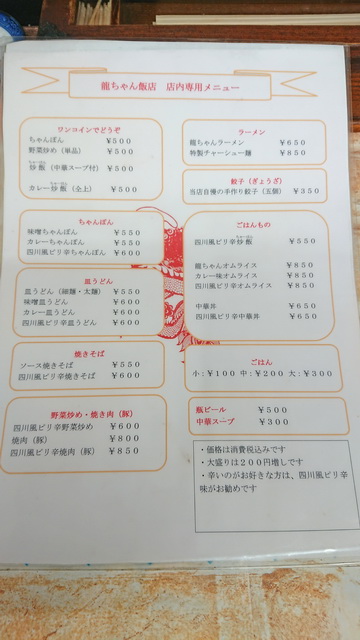 龍ちゃん飯店 店内専用メニュー
ワンコインでどうぞ
ちゃんぽん ¥500
野菜炒め(単品) ¥500
炒飯(中華スープ付) ¥500
カレー炒飯(仝上) ¥500
ちゃんぽん
味噌ちゃんぽん ¥550
カレーちゃんぽん ¥550
四川風ピリ辛ちゃんぽん ¥600
皿うどん
皿うどん(細麺・太麺) ¥550
味噌皿うどん ¥600
カレー皿うどん ¥600
四川風ピリ辛皿うどん ¥600
焼きそば
ソース焼きそば ¥550
四川風ピリ辛焼きそば ¥600
野菜炒め・焼き肉(豚)
四川風ピリ辛野菜炒め ¥600
焼肉(豚) ¥800
四川風ピリ辛焼肉(豚) ¥850
ラーメン
龍ちゃんラーメン ¥650
特製チャーシュー麺 ¥850
餃子(ぎょうざ)
当店自慢の手作り餃子(五個) ¥350
ごはんもの
四川風ピリ辛炒飯 ¥550
龍ちゃんオムライス ¥850
カレー味オムライス ¥850
四川風ピリ辛オムライス ¥850
中華丼 ¥650
四川風ピリ辛中華丼 ¥650
ごはん
小:¥100 中:¥200 大:¥300
瓶ビール ¥500
中華スープ ¥300
・価格は消費税込みです
・大盛りは200円増しです
・辛いのがお好きな方は、四川風ピリ辛
味がお勧めです